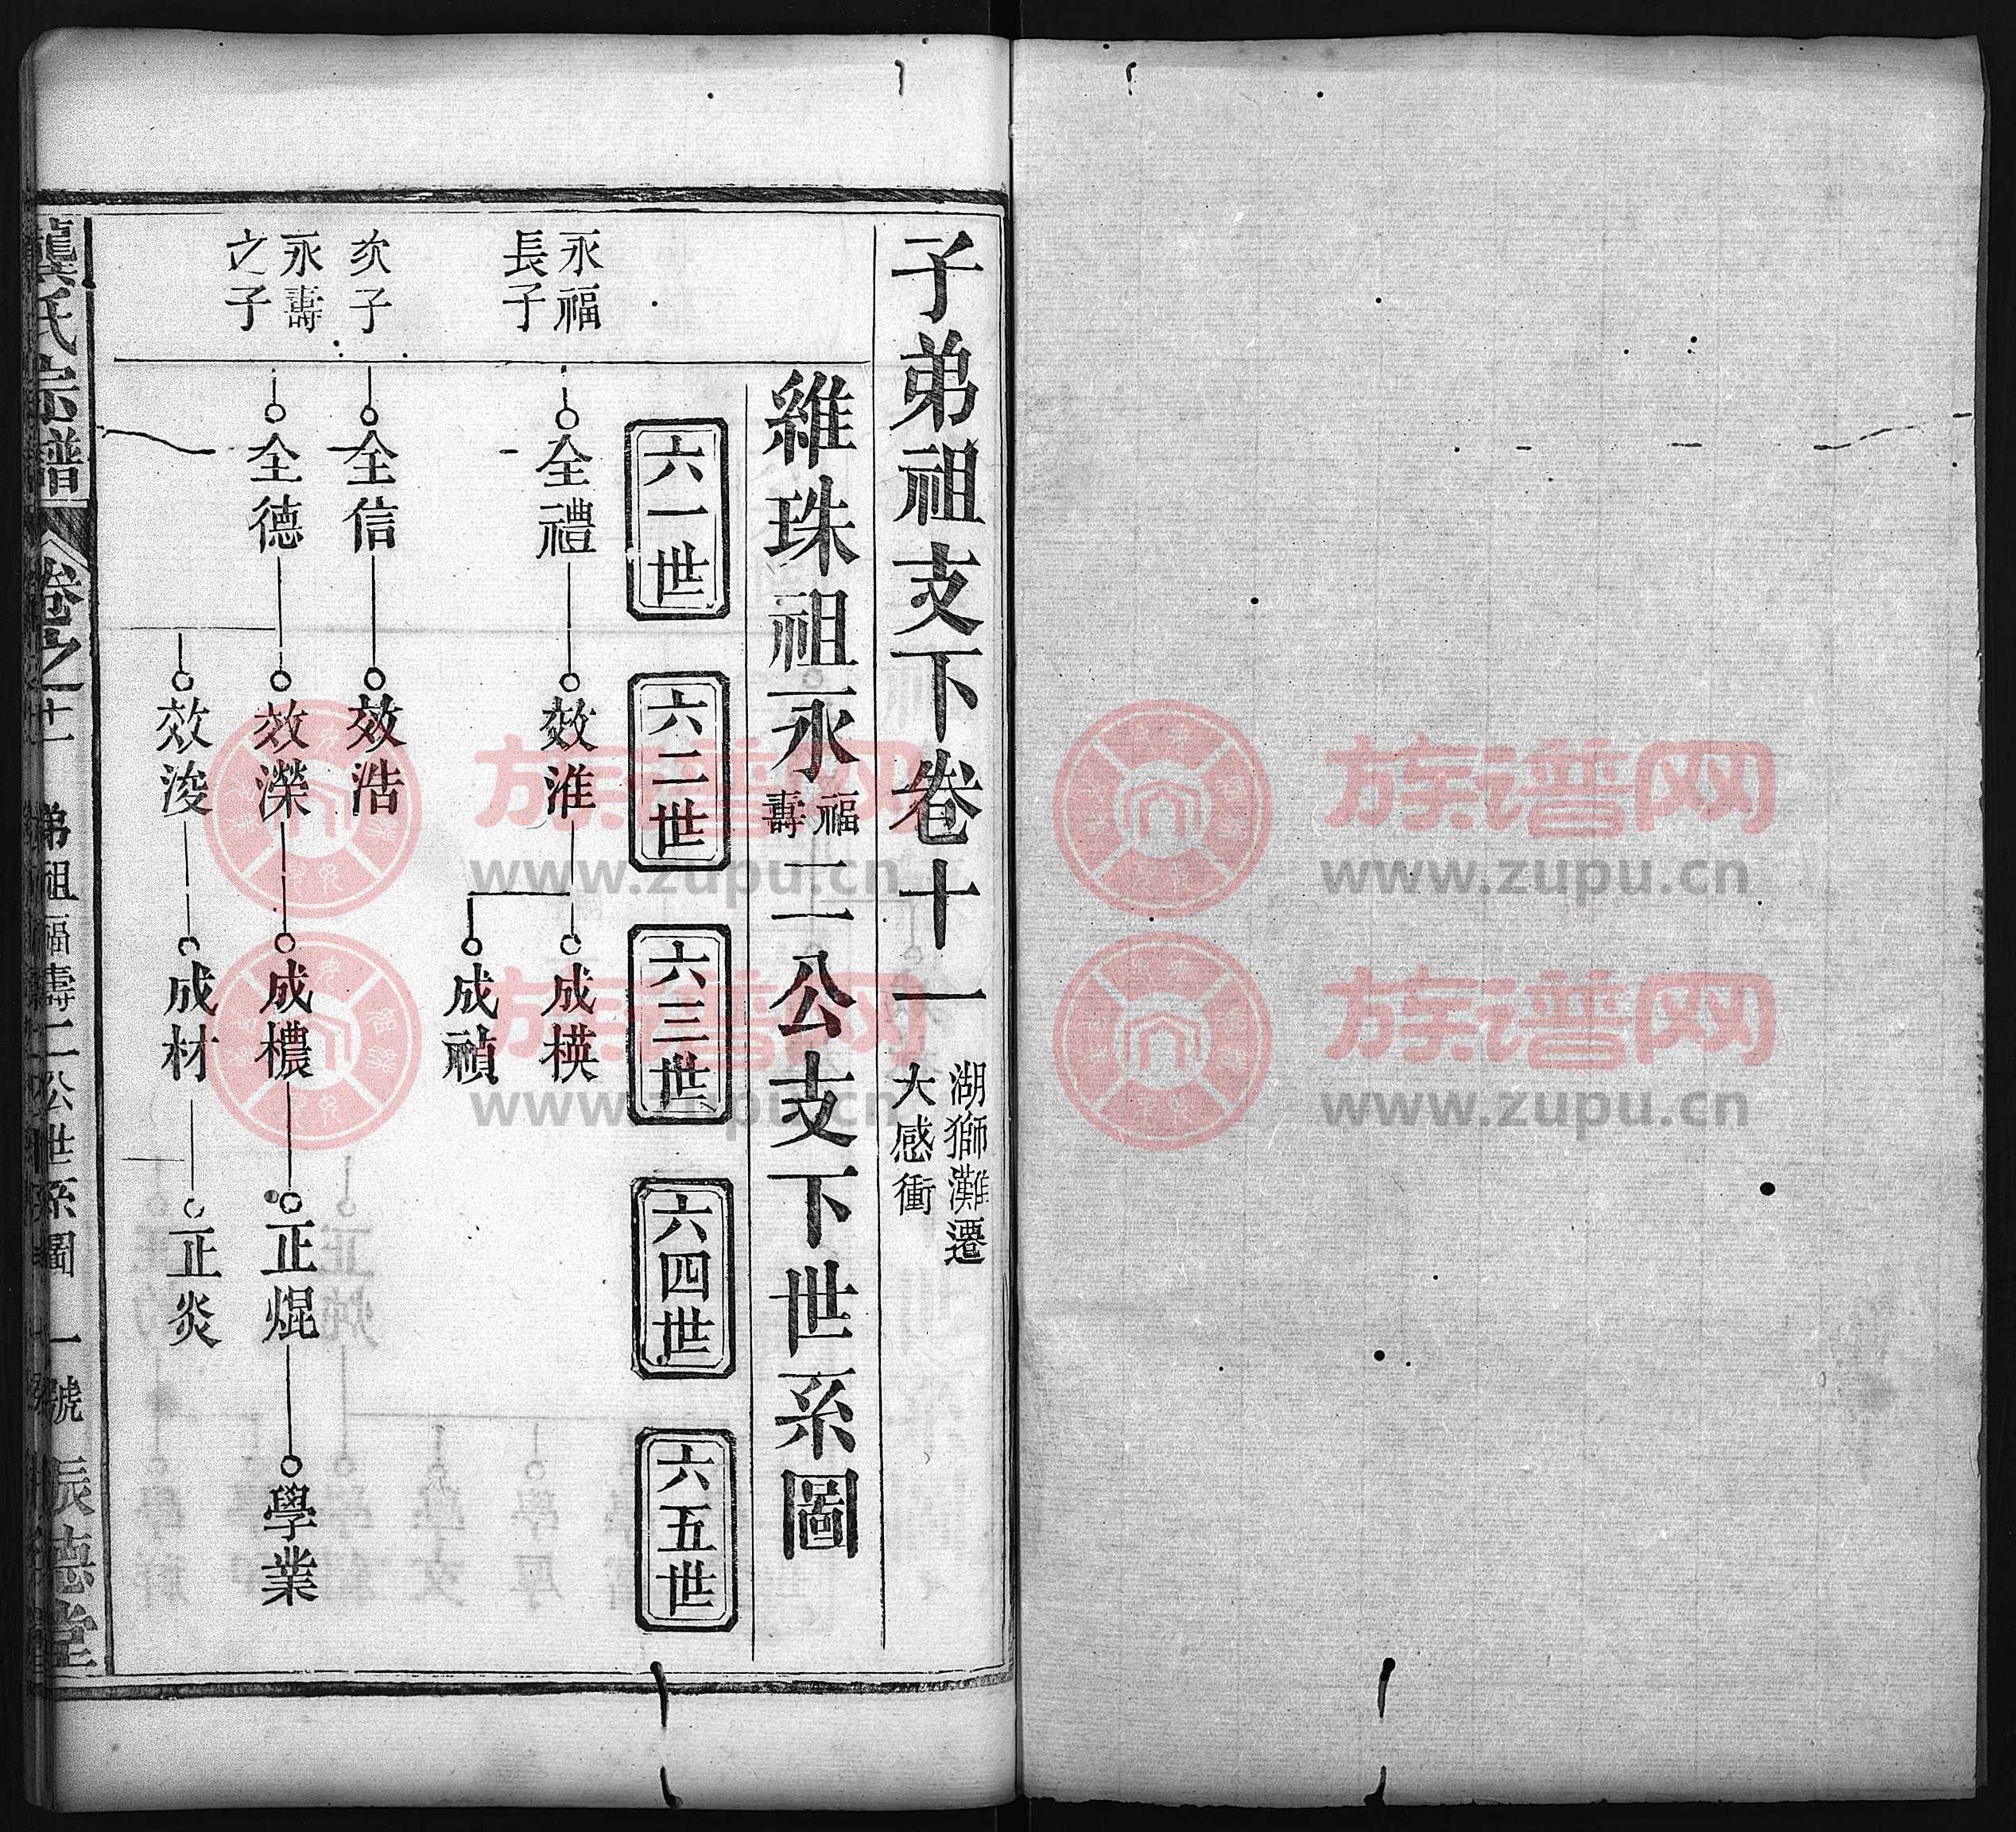 子弟祖支下卷十一
湖獅灘遷
大感衝
維珠祖永福壽二公支下世系圖
六一世
六二世
六三世
六四世
六五世
永福
長子
全禮
效淮
成模
成禎
次子
全信
效浩
永壽
之子
全德
效濚
成檂
正焜
學業
效浚
成材
正炎
龔氏宗譜
卷之十一
弟祖福壽二公世系圖
一號
振德堂
族谱网
www.zupu.cn
族谱网
www.zupu.cn
族谱网
www.zupu.cn
族谱网
www.zupu.cn